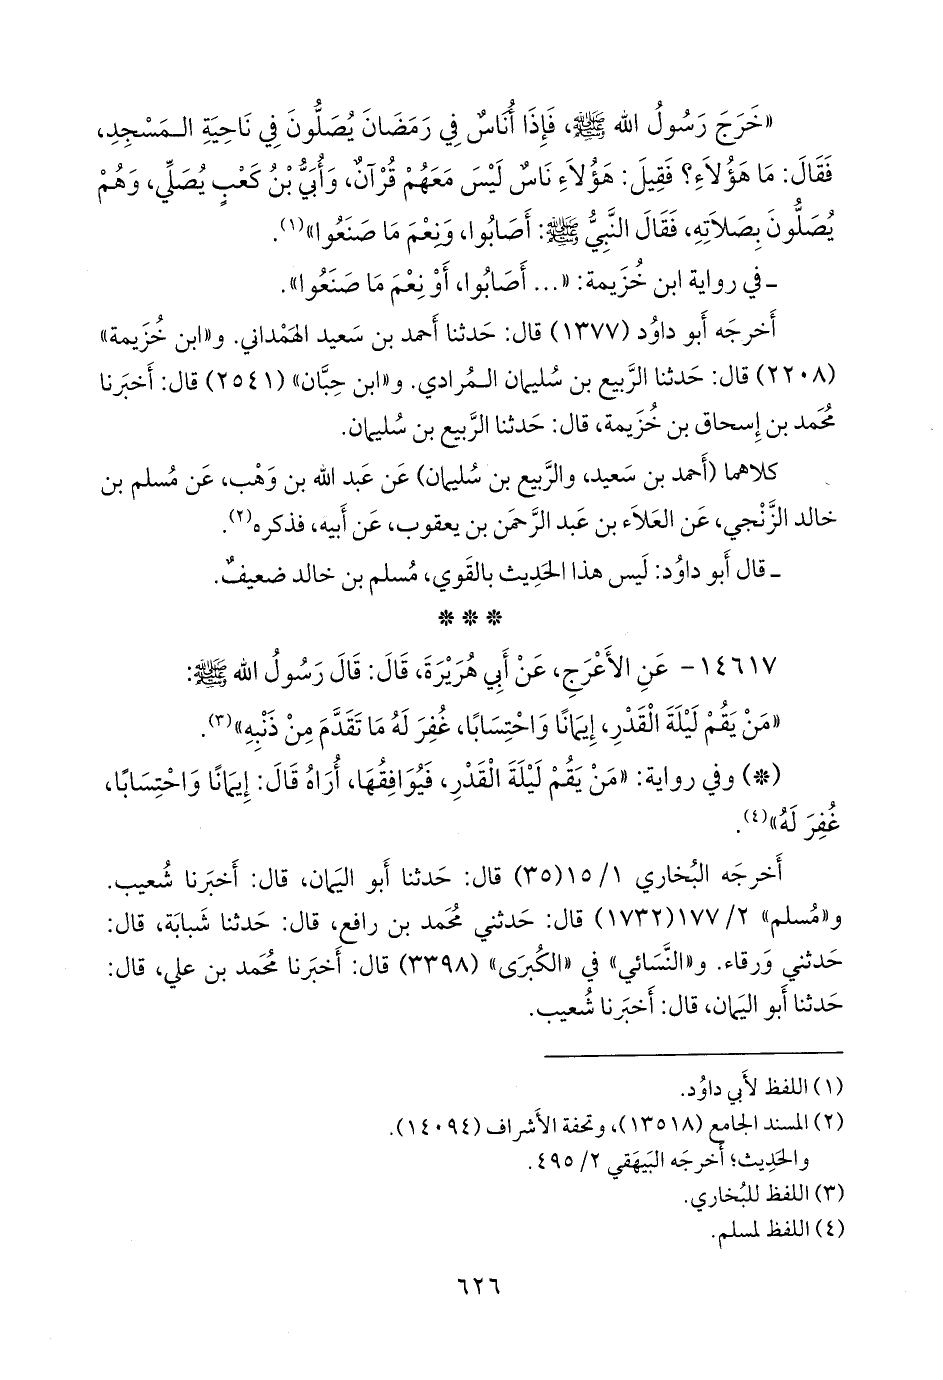 «خَرَجَ رَسُولُ الله ﷺ، فَإِذَا أُنَاسٌ فِي رَمَضَانَ يُصَلُّونَ فِي نَاحِيَةِ الـمَسْجِدِ،
فَقَالَ: مَا هَؤُلاَءِ؟ فَقِيلَ: هَؤُلاَءِ نَاسٌ لَيْسَ مَعَهُمْ قُرْآنٌ، وَأُبَيُّ بْنُ كَعْبٍ يُصَلِّي، وَهُمْ
يُصَلُّونَ بِصَلاَتِهِ، فَقَالَ النَّبِيُّ ﷺ: أَصَابُوا، وَنِعْمَ مَا صَنَعُوا»(١).
ـ في رواية ابن خُزَيمة: «... أَصَابُوا، أَوْ نِعْمَ مَا صَنَعُوا».
أَخرجَه أَبو داوُد (١٣٧٧) قال: حَدثنا أَحمد بن سَعيد الهَمْداني. و«ابن خُزَيمة»
(٢٢٠٨) قال: حَدثنا الرَّبيع بن سُليمان الـمُرادي. و«ابن حِبَّان» (٢٥٤١) قال: أَخبَرنا
مُحمد بن إِسحاق بن خُزَيمة، قال: حَدثنا الرَّبيع بن سُليمان.
كلاهما (أَحمد بن سَعيد، والرَّبيع بن سُليمان) عَن عَبد الله بن وَهْب، عَن مُسلم بن
خالد الزَّنْجي، عَن العَلاَء بن عَبد الرَّحمَن بن يعقوب، عَن أَبيه، فذكره(٢).
ـ قال أَبو داوُد: لَيس هذا الحَدِيث بالقَوي، مُسلم بن خالد ضعيفٌ.
* * *
١٤٦١٧- عَنِ الأَعْرَجِ، عَنْ أَبِي هُرَيْرَةَ، قَالَ: قَالَ رَسُولُ الله ﷺ:
«مَنْ يَقُمْ لَيْلَةَ الْقَدْرِ، إِيمَانًا وَاحْتِسَابًا، غُفِرَ لَهُ مَا تَقَدَّمَ مِنْ ذَنْبِهِ»(٣).
(*) وفي رواية: «مَنْ يَقُمْ لَيْلَةَ الْقَدْرِ، فَيُوَافِقُهَا، أُرَاهُ قَالَ: إِيمَانًا وَاحْتِسَابًا،
غُفِرَ لَهُ»(٤).
أَخرجَه البُخاري ١/ ١٥(٣٥) قال: حَدثنا أَبو اليَمان، قال: أَخبَرنا شُعيب.
و«مُسلم» ٢/ ١٧٧(١٧٣٢) قال: حَدثني مُحمد بن رافع، قال: حَدثنا شَبابَة، قال:
حَدثني وَرقاء. و«النَّسائي» في «الكُبرَى» (٣٣٩٨) قال: أَخبَرنا مُحمد بن علي، قال:
حَدثنا أَبو اليَمان، قال: أَخبَرنا شُعيب.
(١) اللفظ لأَبي داوُد.
(٢) المسند الجامع (١٣٥١٨)، وتحفة الأَشراف (١٤٠٩٤).
والحَدِيث؛ أَخرجَه البَيهَقي ٢/ ٤٩٥.
(٣) اللفظ للبُخاري.
(٤) اللفظ لمسلم.
٦٢٦